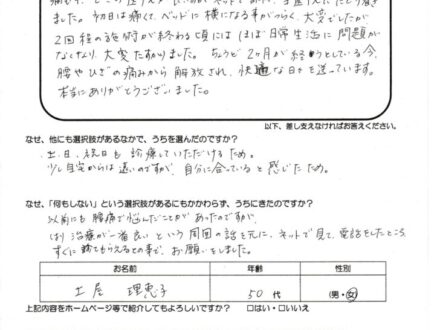 ました。今日は痛くて、ベッドに横になる事がつらく、大変でしたが
2回程の施術が終わる頃にはほぼ日常生活に問題が
なくなり、大変たすかりました。ちょうど2ヶ月が終ろうとしている今、
腰やひざの痛みから解放され、快適な日々を送っています。
本当にありがとうございました。
以下、差し支えなければお答えください。
なぜ、他にも選択肢があるなかで、うちを選んだのですか?
土、日、祝日も診療していただけるため。
少し自宅からは遠いのですが、自分に合っていると感じたため。
なぜ、「何もしない」という選択肢があるにもかかわらず、うちにきたのですか?
以前にも腰痛で悩んだことがあったのですが、
治療が一番良いという周囲の話を元に、ネットで見て、電話をしたところ、
すぐに診てもらえるとの事で、お願いをしました。
お名前 年齢 性別
土屋 理恵子 50代 (男・女)
上記内容をホームページ等で紹介してもよろしいですか? □はい・□いいえ